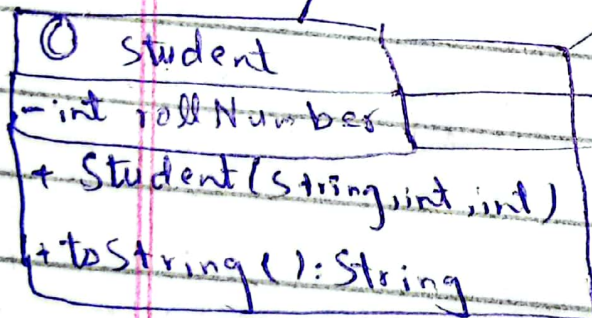 student
- int rollNumber
+ Student(String, int, int)
+ toString(): String